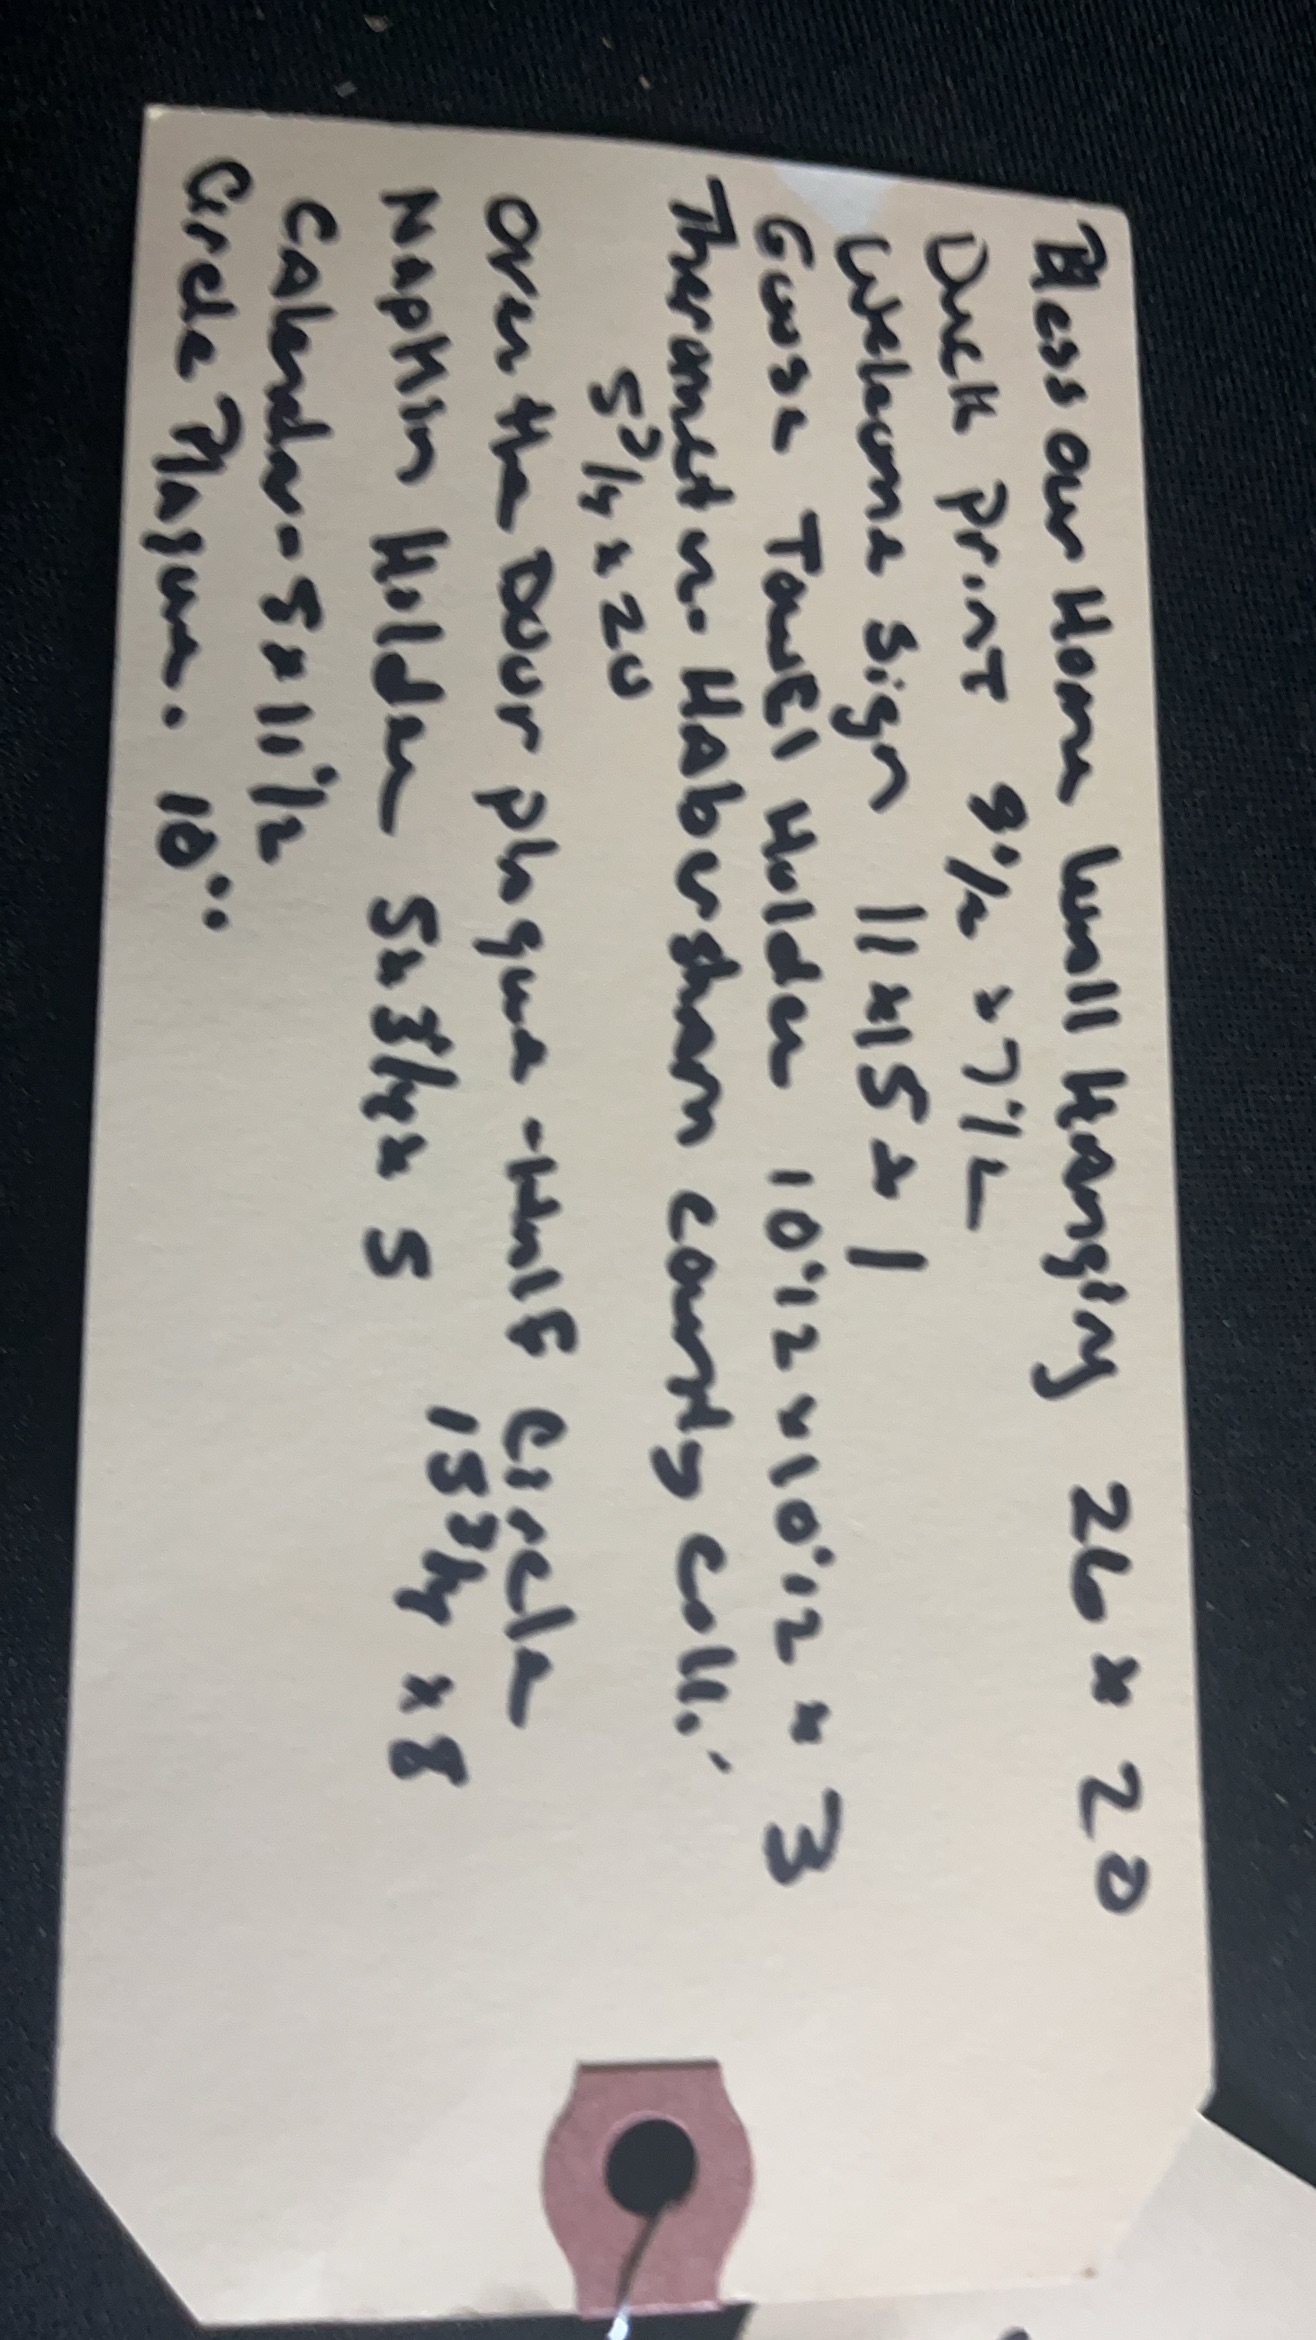 Bless our Home Wall Hanging 26 x 20
Duck Print 9 1/2 x 7 1/2
Welcome Sign 11 x 15 x 1
Goose Towel Holder 10 1/2 x 10 1/2 x 3
Thermometer. Habersham County Coll.
5 3/4 x 20
Over the Door plaque - Half Circle
15 3/4 x 8
Napkin Holder 5 x 3/4 x 5
Calender - 5 x 11 1/2
Circle Plaque. 10"